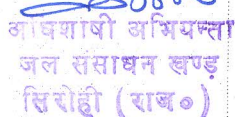 अधिशाषी अभियन्ता
जल संसाधन खण्ड़
सिरोही (राज०)